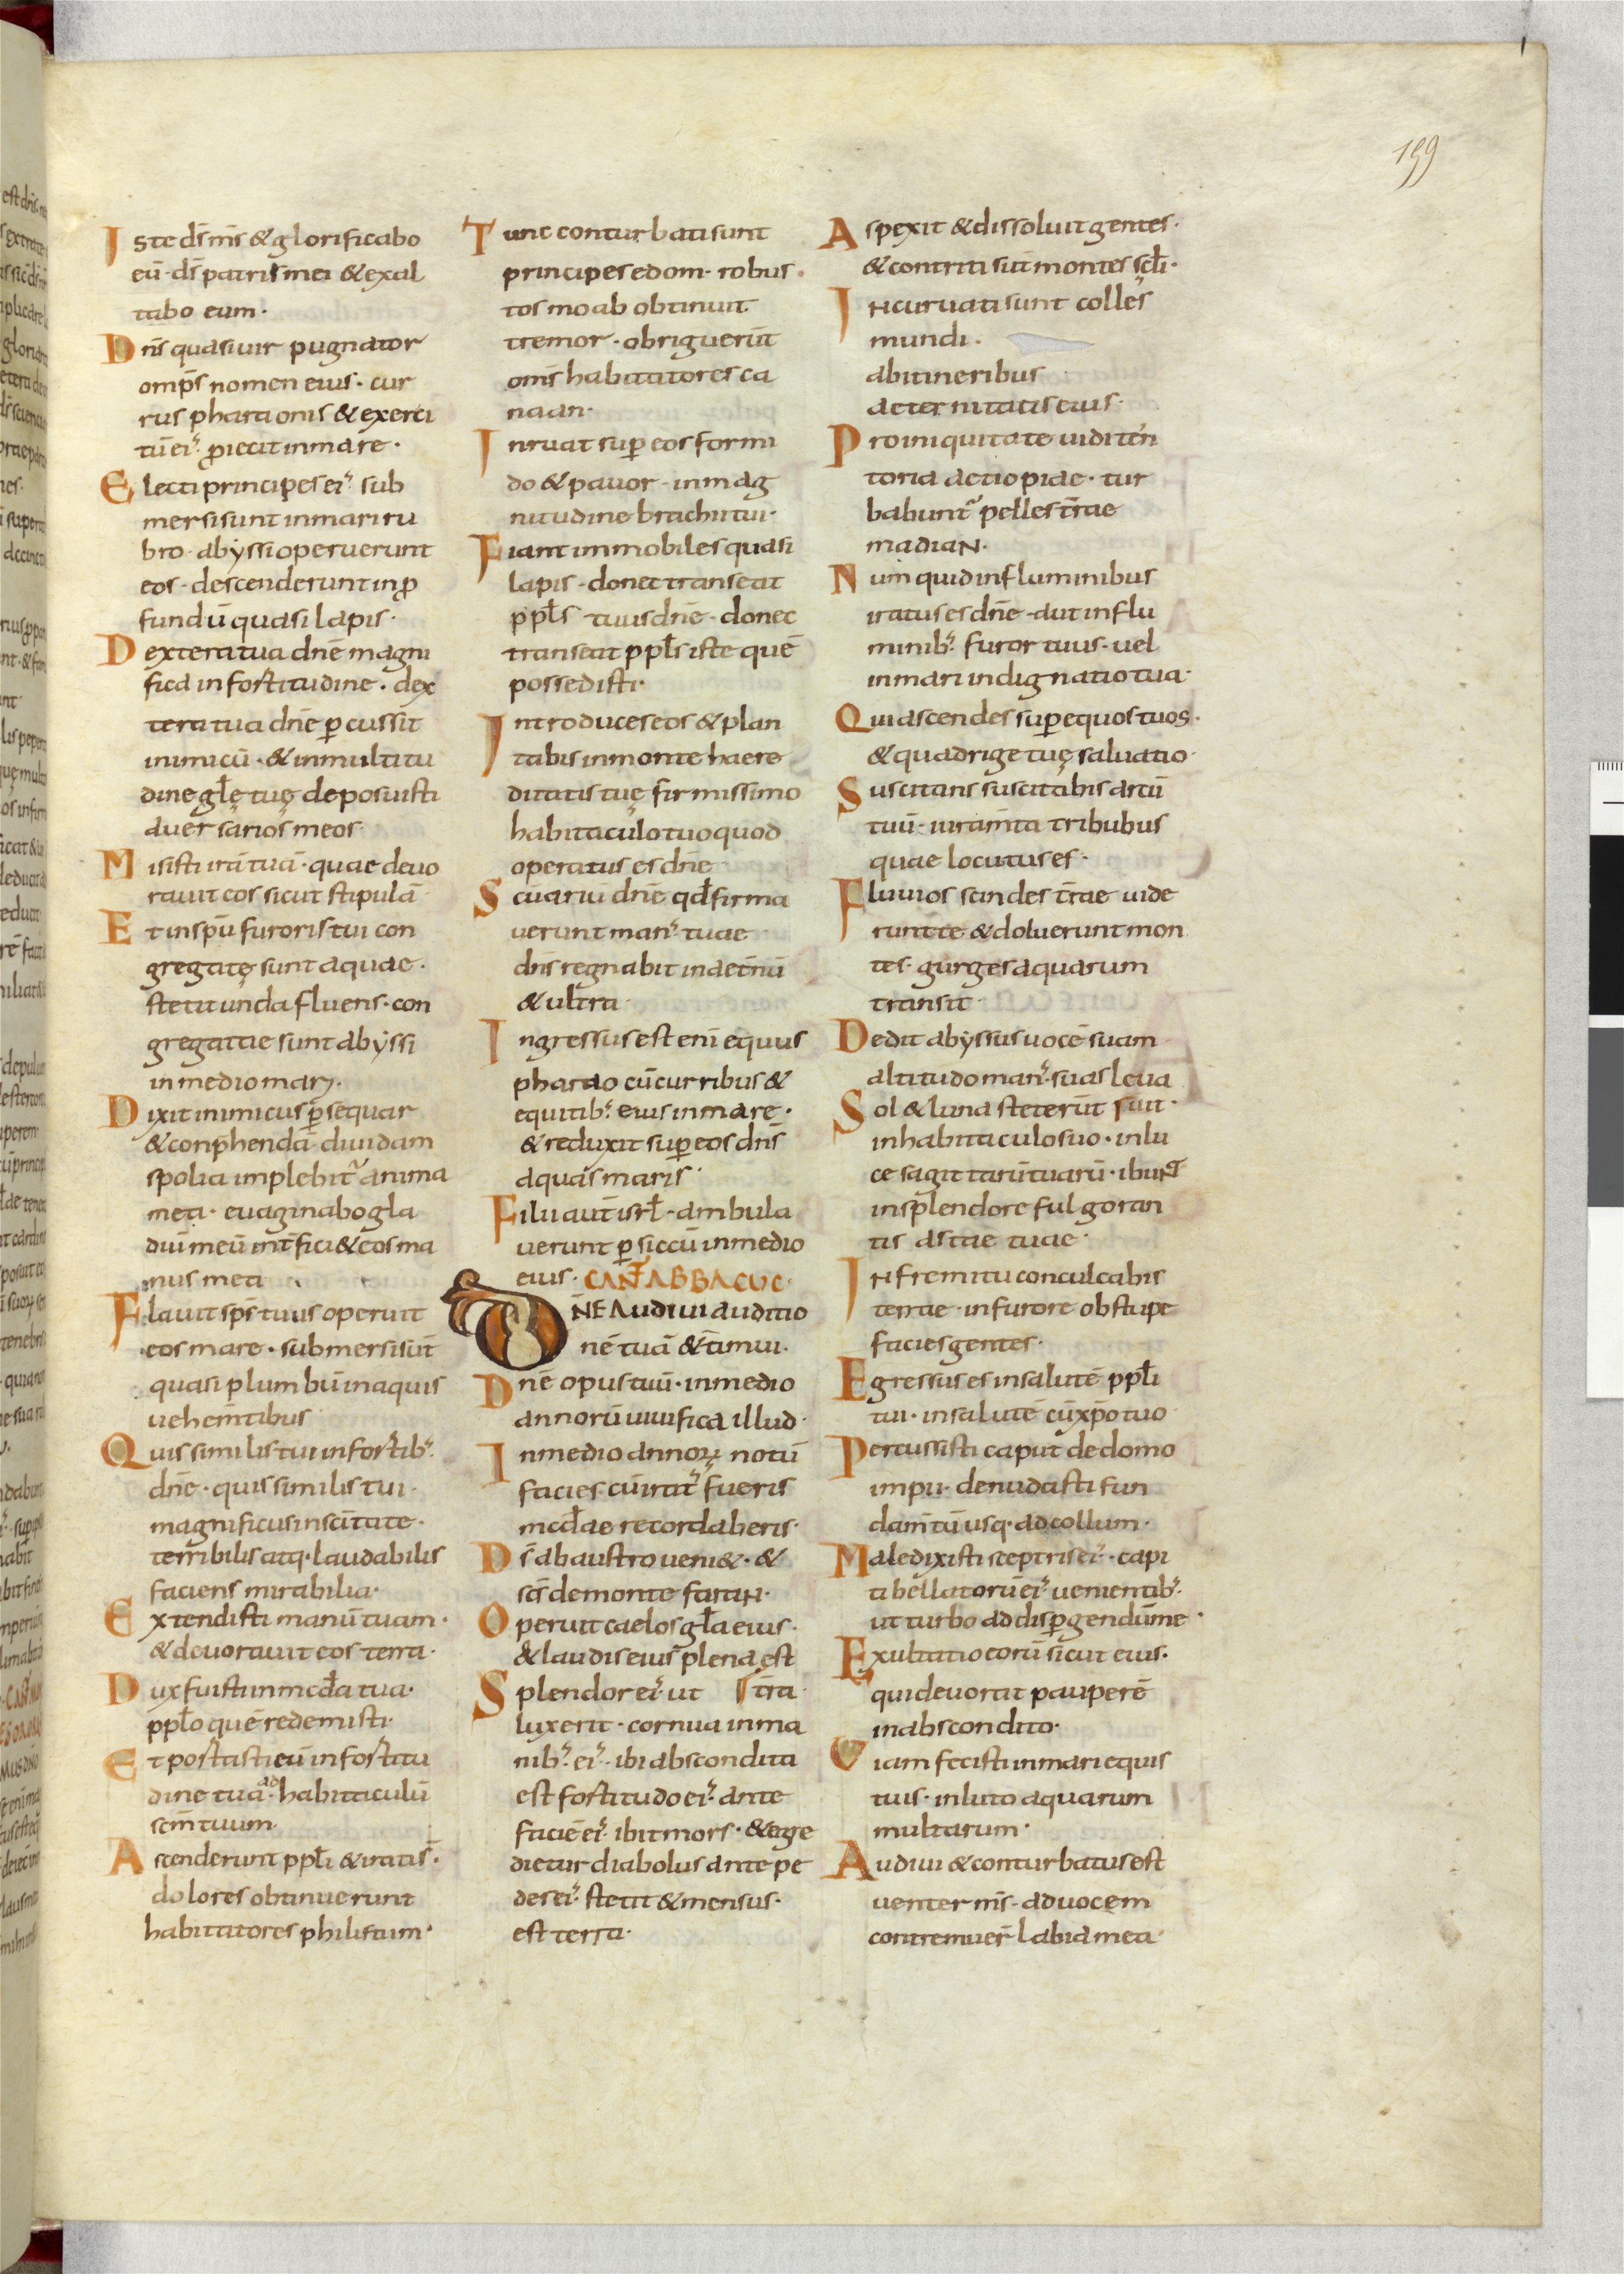 199
Iste ds̄ ms̄ & glorificabo
eū · ds̄ patris mei & exal
tabo eum ·
Dn̄s quasi uir pugnator
omp̄s nomen eius · cur
rus pharaonis & exerci
tū ei᾽ ꝓiecit in mare ·
Electi principes ei᾽ sub
mersi sunt in mari ru
bro · abyssi operuerunt
eos · descenderunt in ꝓ
fundū quasi lapis ·
Dextera tua dn̄e magni
fica in fortitudine · dex
tera tua dn̄e ꝑcussit
inimicū · & in multitu
dine gl̄ę tuę deposuisti
auersarios meos
Misisti irā tuā · quae deuo
rauit eos sicut stipulā
Et in sp̄u furoris tui con
gregatę sunt aquae ·
stetit unda fluens · con
gregatae sunt abyssi
in medio marij ·
Dixit inimicus ꝑsequar
& conp̄hendā · diuidam
spolia implebit᾽ anima
mea · euaginabo gla
diū meū int̄fici& eos ma
nus mea
Flauit sp̄s tuus operuit
eos mare · submersi sūt
quasi plumbū in aquis
uehem̄tibus
Quis similis tui in fortib᾽
dn̄e · quis similis tui ·
magnificus in sc̄itate ·
terribilis atq· laudabilis
faciens mirabilia ·
Extendisti manū tuam ·
& deuorauit eos terra ·
Dux fuisti in mcd̄a tua ·
ppl̄o quē redemisti ·
Et portasti eū in fortitu
dine tua · ad habitaculū
sc̄m tuum
Ascenderunt ppl̄i & iratis̄ ·
dolores obtinuerunt
habitatores philistiim ·
Tunc conturbati sunt
principes edom · robus
tos moab obtinuit
tremor · obriguerūt
om̄s habitatores ca
naan ·
Inruat suꝑ eos formi
do & pauor · in mag
nitudine brachii tui ·
Fiant immobiles quasi
lapis · donec transeat
ppl̄s tuus dn̄e · donec
transeat ppl̄s iste quē
possedisti ·
Introduces eos & plan
tabis in monte haere
ditatis tuę firmissimo
habitaculo tuo quod
operatus es dn̄e
Sc̄uariū dn̄e qd̄ firma
uerunt man᾽ tuae
dn̄s regnabit in aet̄nū
& ultra
Ingressus est enī equus
pharao cū curribus &
equitib᾽ eius in mare ·
& reduxit suꝑ eos dn̄s
aquas maris ·
Filii aut̄ isrl̄ · ambula
uerunt ꝑ siccū in medio
eius · CANT̄ ABBACUC ·
DN̄E AUdiui auditio
nē tuā & timui ·
Dn̄e opus tuū · in medio
annorū uiuifica illud ·
In medio annoꝝ notū
facies cū irat᾽ fueris
mcd̄ae recordaberis ·
Ds̄ ab austro ueni& · &
sc̄s de monte faran ·
Operuit caelos gl̄a eius ·
& laudis eius plena est
Splendor ei᾽ ut t̄ra
lux erit · cornua in ma
nib᾽ ei᾽ · ibi abscondita
est fortitudo ei᾽ · ante
faciē ei᾽ ibit mors · & egre
dietur diabolus ante pe
des ei᾽ stetit & mensus ·
est terra ·
Aspexit & dissoluit gentes ·
& contriti sūt montes sc̄li ·
Incuruati sunt colles
mundi ·
ab itineribus
aeternitatis eius ·
Pro iniquitate uidi ten
toria aetiopiae · tur
babunt᾽ pelles t̄rae
madian ·
Numquid in fluminibus
iratus es dn̄e · aut in flu
minib᾽ furor tuus · uel
in mari indignatio tua ·
Qui ascendes suꝑ equos tuos ·
& quadrige tuę saluatio ·
Suscitans suscitabis arcū
tuū · iuram̄ta tribubus
quae locutus es ·
Fluuios scindes t̄rae uide
runt te & doluerunt mon
tes · gurges aquarum
transiit ·
Dedit abyssus uocē suam
altitudo man᾽ suas leua
Sol & luna steterūt uit ·
in habitaculo suo · in lu
ce sagittarū tuarū · ibunt
in splendore fulgoran
tis astae tuae ·
In fremitu conculcabis
terrae · in furore obstupe
facies gentes ·
Egressus es in salutē ppl̄i
tui · in salutē cū xp̄o tuo
Percussisti caput de domo
impii · denudasti fun
dam̄tū usq· ad collum ·
Maledixisti sceptris ei᾽ · capi
ti bellatorū ei᾽ uenientib᾽ ·
ut turbo ad disꝑgendū me ·
Exultatio eorū sicut eius ·
qui deuorat pauperē
in abscondito ·
Uiam fecisti in mari equis
tuis · in luto aquarum
multarum ·
Audiui & conturbatus est
uenter ms̄ · a uocem
contremuer̄ labia mea